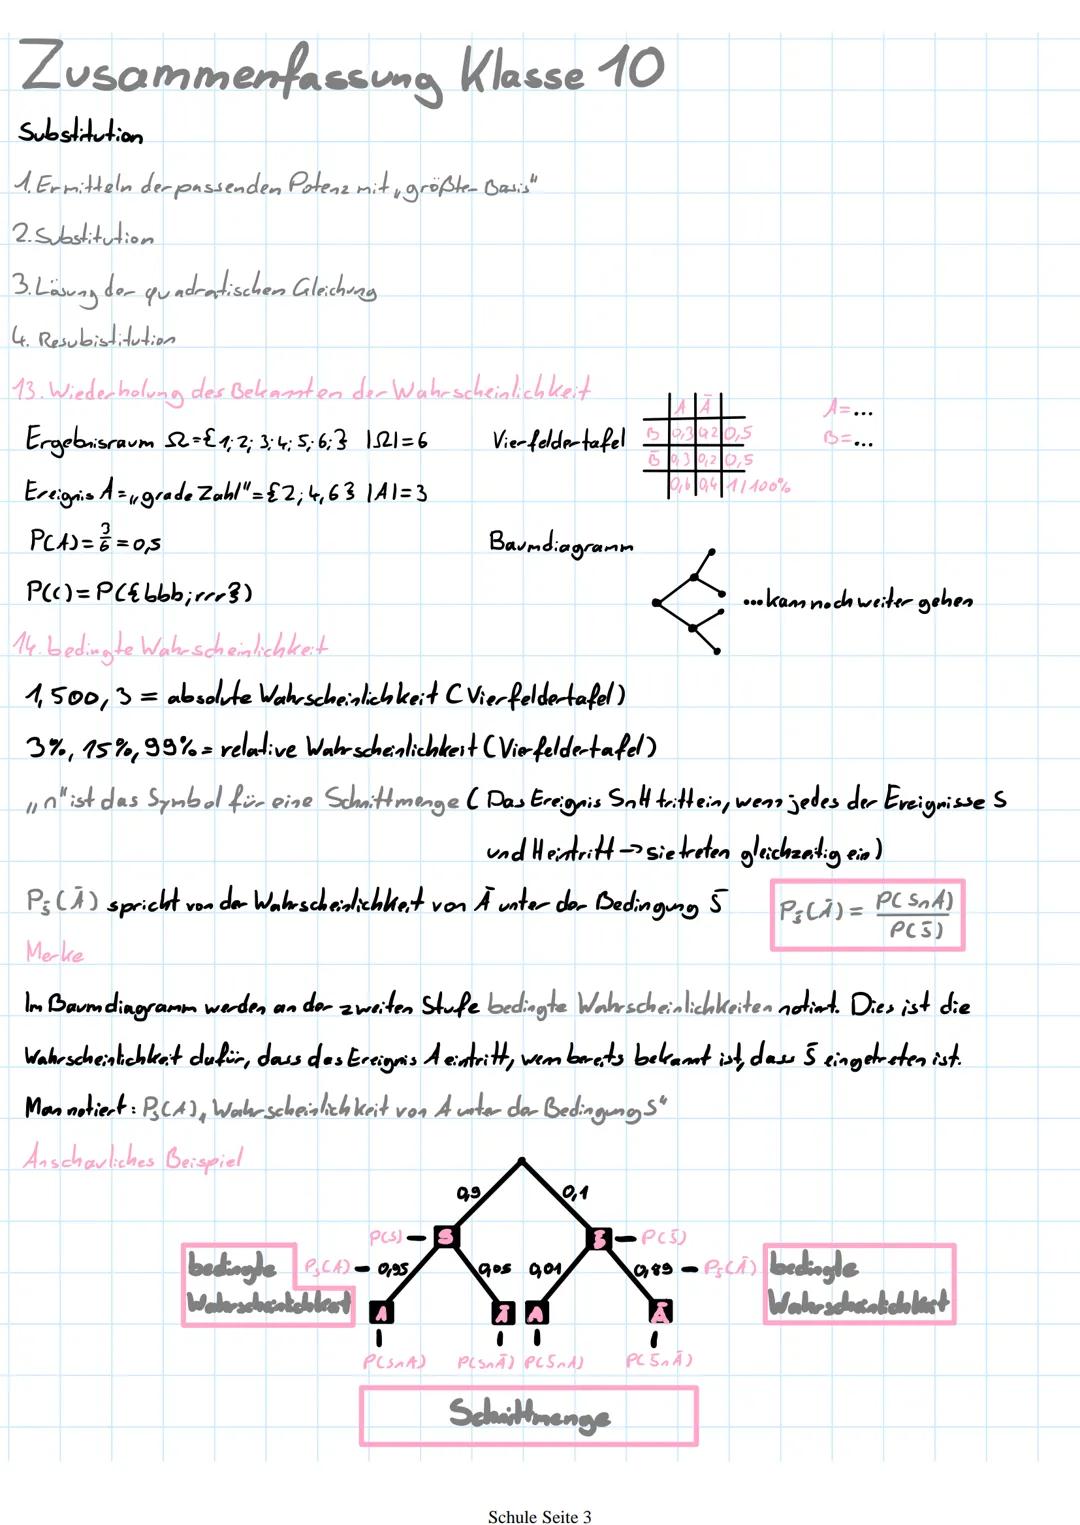 Zusammenfassung Klasse 10
Substitution
1. Ermitteln der passenden Potenz mit „größter Basis"
2. Substitution
3. Lösung der quadratischen Gleichung
4. Resubistitution
13. Wiederholung des Bekannten der Wahrscheinlichkeit
Ergebnisraum Ω={1; 2; 3; 4; 5; 6;} |Ω|=6
Vierfeldertafel
A Ā
B 0,3 0,2 0,5
B̄ 0,3 0,2 0,5
0,6 0,4 1/100%
A=...
B=...
Ereignis A=„grade Zahl"={2; 4, 6} |A|=3
P(A)=3/6=0,5
Baumdiagramm
...kann noch weiter gehen
P(C)=P({bbb; rrr})
14. bedingte Wahrscheinlichkeit
1, 500, 3 = absolute Wahrscheinlichkeit (Vierfeldertafel)
3%, 15%, 99% = relative Wahrscheinlichkeit (Vierfeldertafel)
„∩" ist das Symbol für eine Schnittmenge (Das Ereignis S∩H tritt ein, wenn jedes der Ereignisse S
und H eintritt → sie treten gleichzeitig ein)
P_S̄(Ā) spricht von der Wahrscheinlichkeit von Ā unter der Bedingung S̄
P_S̄(Ā) = P(S∩A) / P(S̄)
Merke
Im Baumdiagramm werden an der zweiten Stufe bedingte Wahrscheinlichkeiten notiert. Dies ist die
Wahrscheinlichkeit dafür, dass das Ereignis A eintritt, wenn bereits bekannt ist, dass S̄ eingetreten ist.
Man notiert: P_S(A) „Wahrscheinlichkeit von A unter der Bedingung S"
Anschauliches Beispiel
0,9 0,1
P(S) S S̄ P(S̄)
bedingte Wahrscheinlichkeit
P_S(A) 0,95 0,05 0,01 0,89 P_S̄(Ā)
bedingte Wahrscheinlichkeit
A Ā A Ā
P(S∩A) P(S∩Ā) P(S̄∩A) P(S̄∩Ā)
Schnittmenge
Schule Seite 3